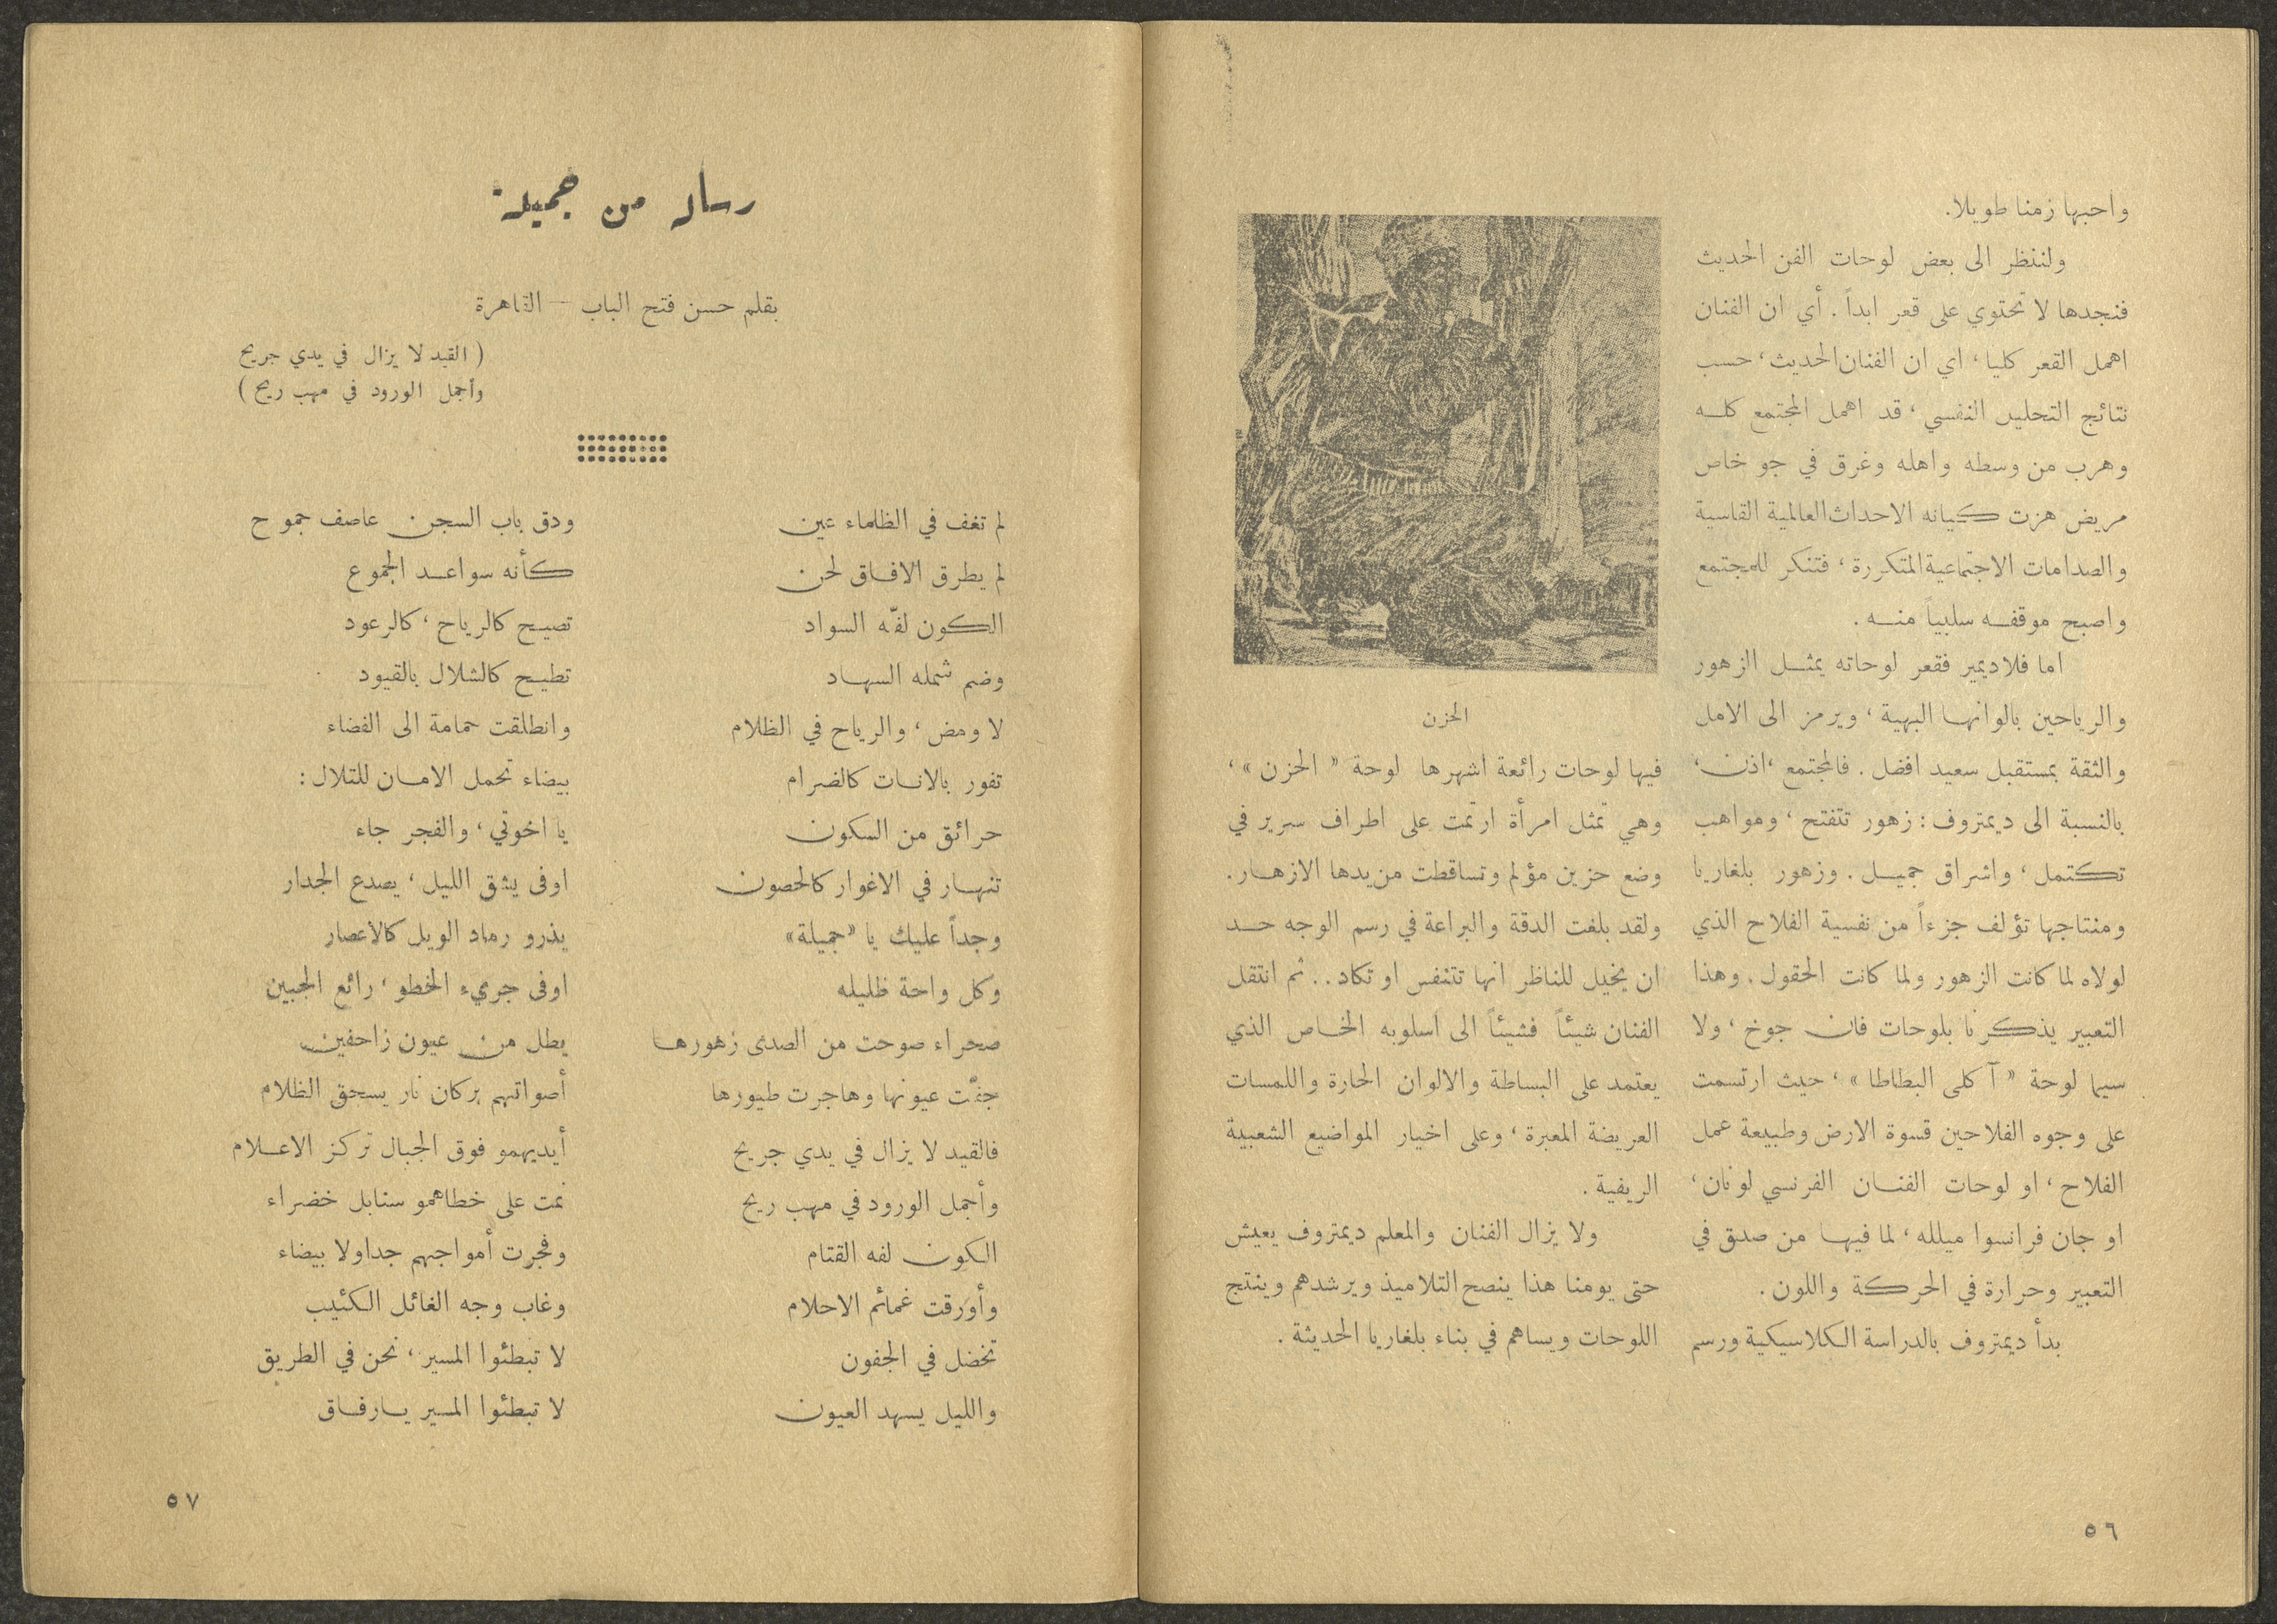 واحبها زمنا طويلا.
ولننظر الى بعض لوحات الفن الحديث
فنجدها لا تحتوي على قعر ابداً . أي ان الفنان
اهمل القعر كليا ، اي ان الفنان الحديث ، حسب
نتائج التحليل النفسي ، قد اهمل المجتمع كله
وهرب من وسطه واهله وغرق في جو خاص
مريض هزت كيانه الاحداث العالمية القاسية
والصدامات الاجتماعية المتكررة ، فتنكر للمجتمع
واصبح موقفه سلبياً منه .
اما فلاديمير فقعر لوحاته يمثل الزهور
والرياحين بالوانها البهية ، ويرمز الى الامل
والثقة بمستقبل سعيد افضل . فالمجتمع ، اذن ،
بالنسبة الى ديمتروف : زهور تتفتح ، ومواهب
تكتمل ، واشراق جميل . وزهور بلغاريا
ومنتاجها تؤلف جزءاً من نفسية الفلاح الذي
لولاه لما كانت الزهور ولما كانت الحقول . وهذا
التعبير يذكرنا بلوحات فان جوخ ، ولا
سيما لوحة « آكلى البطاطا » ، حيث ارتسمت
على وجوه الفلاحين قسوة الارض وطبيعة عمل
الفلاح ، او لوحات الفنان الفرنسي لونان ،
او جان فرانسوا ميلله ، لما فيها من صدق في
التعبير وحرارة في الحركة واللون .
بدأ ديمتروف بالدراسة الكلاسيكية ورسم
الحزن
فيها لوحات رائعة اشهرها لوحة « الحزن » ،
وهي تمثل امرأة ارتمت على اطراف سرير في
وضع حزين مؤلم وتساقطت من يدها الازهار .
ولقد بلغت الدقة والبراعة في رسم الوجه حد
ان يخيل للناظر انها تتنفس او تكاد . . ثم انتقل
الفنان شيئاً فشيئاً الى اسلوبه الخاص الذي
يعتمد على البساطة والالوان الحارة واللمسات
العريضة المعبرة ، وعلى اخيار المواضيع الشعبية
الريفية .
ولا يزال الفنان والمعلم ديمتروف يعيش
حتى يومنا هذا ينصح التلاميذ ويرشدهم وينتج
اللوحات ويساهم في بناء بلغاريا الحديثة .
٥٦
رسالة من جميلة
بقلم حسن فتح الباب — القاهرة
( القيد لا يزال في يدي جريح
وأجمل الورود في مهب ريح )
لم تغف في الظلماء عين
لم يطرق الافاق لحن
الكون لفّه السواد
وضم شمله السهاد
لا ومض ، والرياح في الظلام
تفور بالانات كالضرام
حرائق من السكون
تنهار في الاغوار كالحصون
وجداً عليك يا « جميلة »
وكل واحة ظليله
صحراء صوحت من الصدى زهورها
جفّت عيونها وهاجرت طيورها
فالقيد لا يزال في يدي جريح
وأجمل الورود في مهب ريح
الكون لفه القتام
وأورقت غمائم الاحلام
تخضل في الجفون
والليل يسهد العيون
ودق باب السجن عاصف جموح
كأنه سواعد الجموع
تصيح كالرياح ، كالرعود
تطيح كالشلال بالقيود
وانطلقت حمامة الى الفضاء
بيضاء تحمل الامان للتلال :
يا اخوتي ، والفجر جاء
اوفى يشق الليل ، يصدع الجدار
يذرو رماد الويل كالاعصار
اوفى جريء الخطو ، رائع الجبين
يطل من عيون زاحفين
أصواتهم بركان نار يسحق الظلام
أيديهمو فوق الجبال تركز الاعلام
نمت على خطاهمو سنابل خضراء
وفجرت أمواجهم جداولا بيضاء
وغاب وجه الغائل الكئيب
لا تبطئوا المسير ، نحن في الطريق
لا تبطئوا المسير يارفاق
٥٧